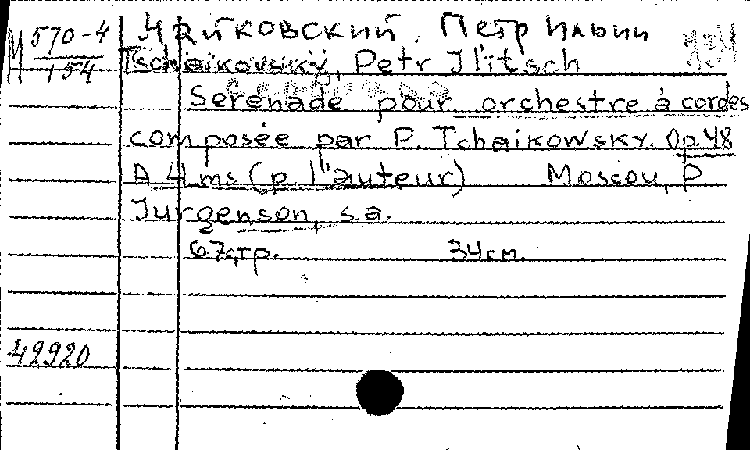 М 570-4
154
Чайковский, Петр Ильич
Tschaikovsky, Petr Il'itsch
Serenade pour orchestre à cordes
composée par P. Tchaikowsky. Op. 48
A 4 ms (p. l'auteur) Moscou, P.
Jurgenson, s.a.
67 стр. 34 см.
42920